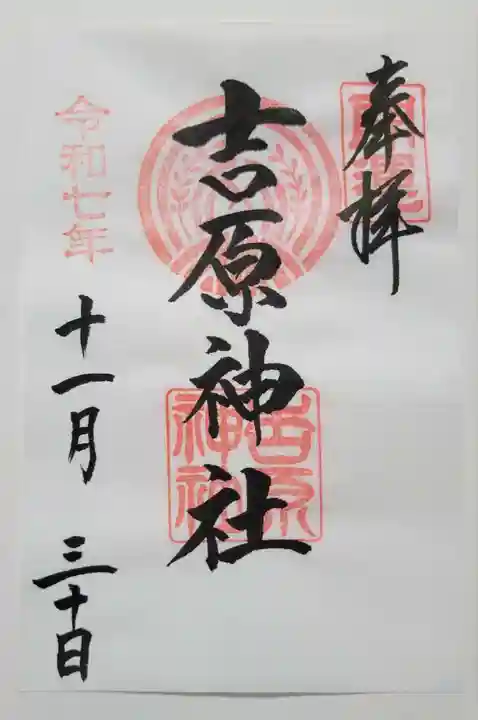 奉拝
開運
吉原神社
吉原神社
令和七年
十一月 三十日